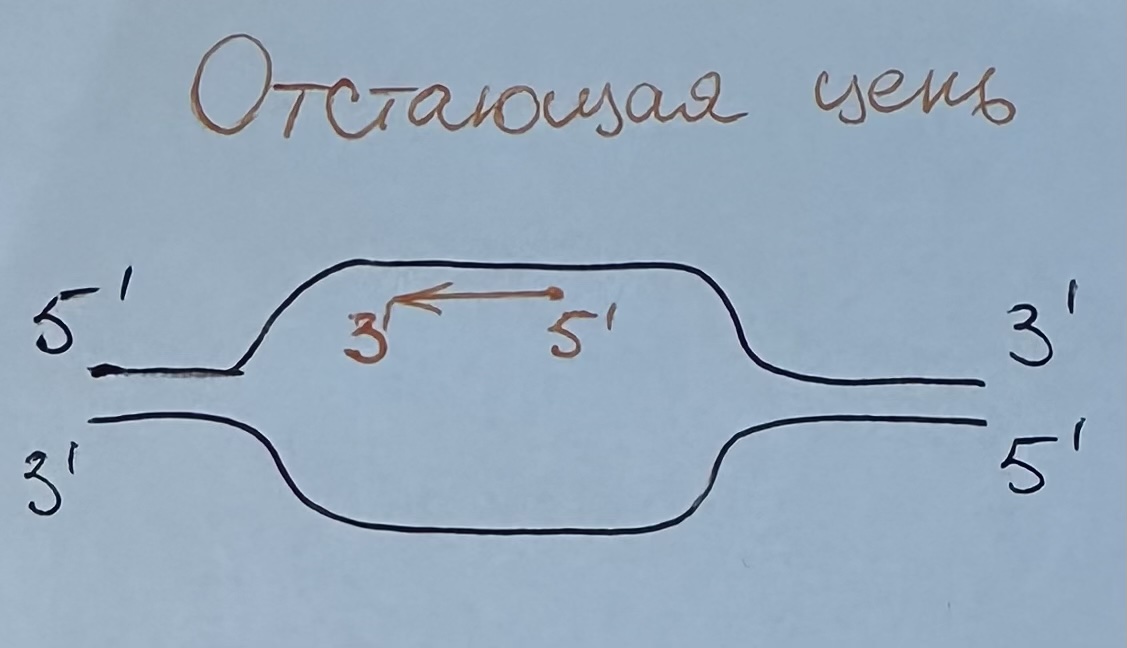 Отстающая цепь
5' 3'
3' 5'
3' 5'